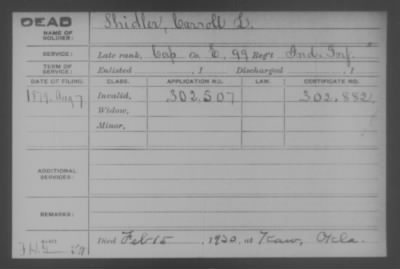 DEAD
NAME OF SOLDIER: Shidler, Carroll L.
SERVICE: Late rank, Cap Co. E, 99 Reg't Ind. Inf.
TERM OF SERVICE: Enlisted , 1 Discharged , 1
DATE OF FILING. CLASS. APPLICATION NO. LAW. CERTIFICATE NO.
1879, Aug 7 Invalid, 302,507 302,882
Widow,
Minor,
ADDITIONAL SERVICES:
REMARKS:
Died Feb 15 , 1920, at Kaw, Okla.